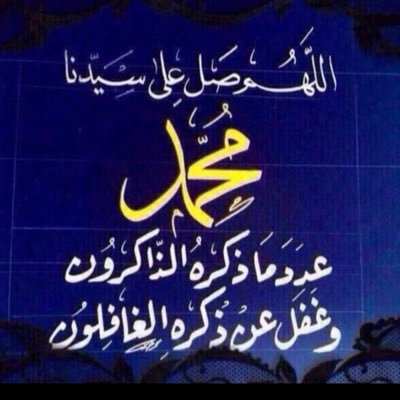 اللَّهُم صَل عِلى سَيِّدنا
مُحَمَّد
عدَد مَا ذكرهُ الذّاكرُون
وغَفل عَن ذكرهِ الغَافِلوُن